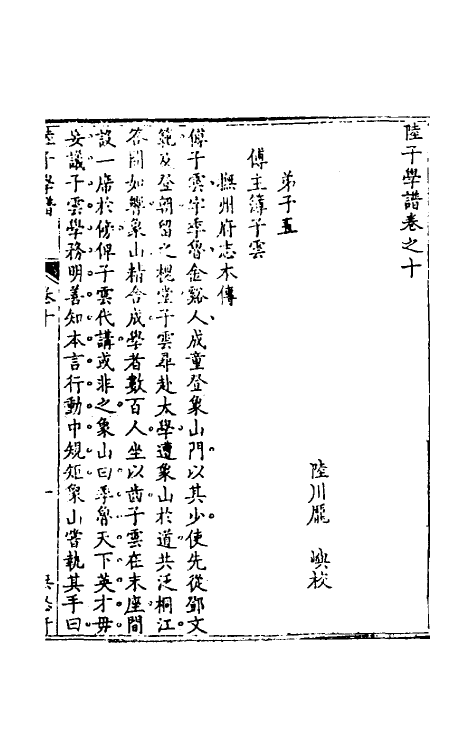 陸子學譜卷之十
陸川龐 嶼校
弟子五
傅主簿子雲
撫州府志本傳
傅子雲字季魯金谿人成童登象山門以其少使先從鄧文
範及登朝留之槐堂子雲尋赴太學遭象山於道共泛桐江
答問如響象山精舍成學者數百人坐以齒子雲在末座間
設一席於傍俾子雲代講或非之象山曰季魯天下英才毋
妄議子雲學務明善知本言行動中規矩象山嘗執其手曰
陸子學譜
卷十
一